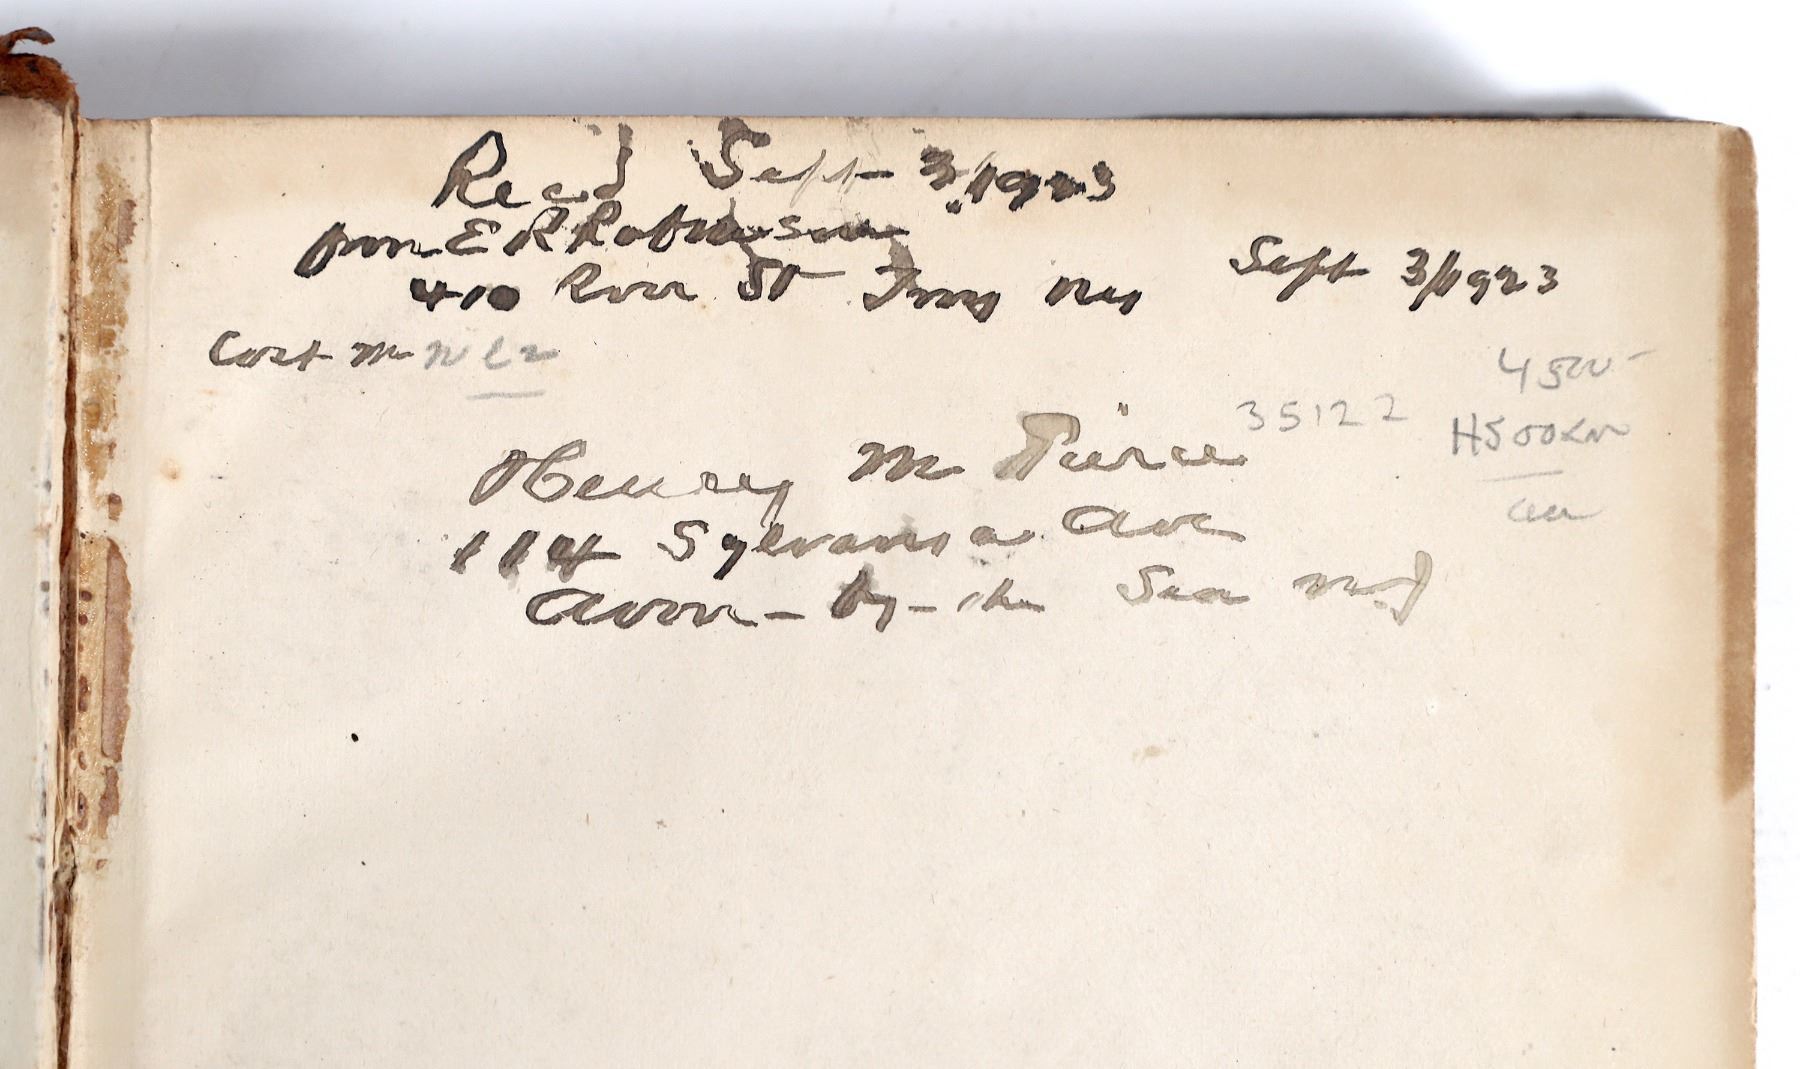 Recd Sept 3/1923
from E R Robinson
410 River St Troy NY Sept 3/1923
Cost m
35122
Henry M Pierce
114 Sylvania Ave
Avon-by-the Sea N.J